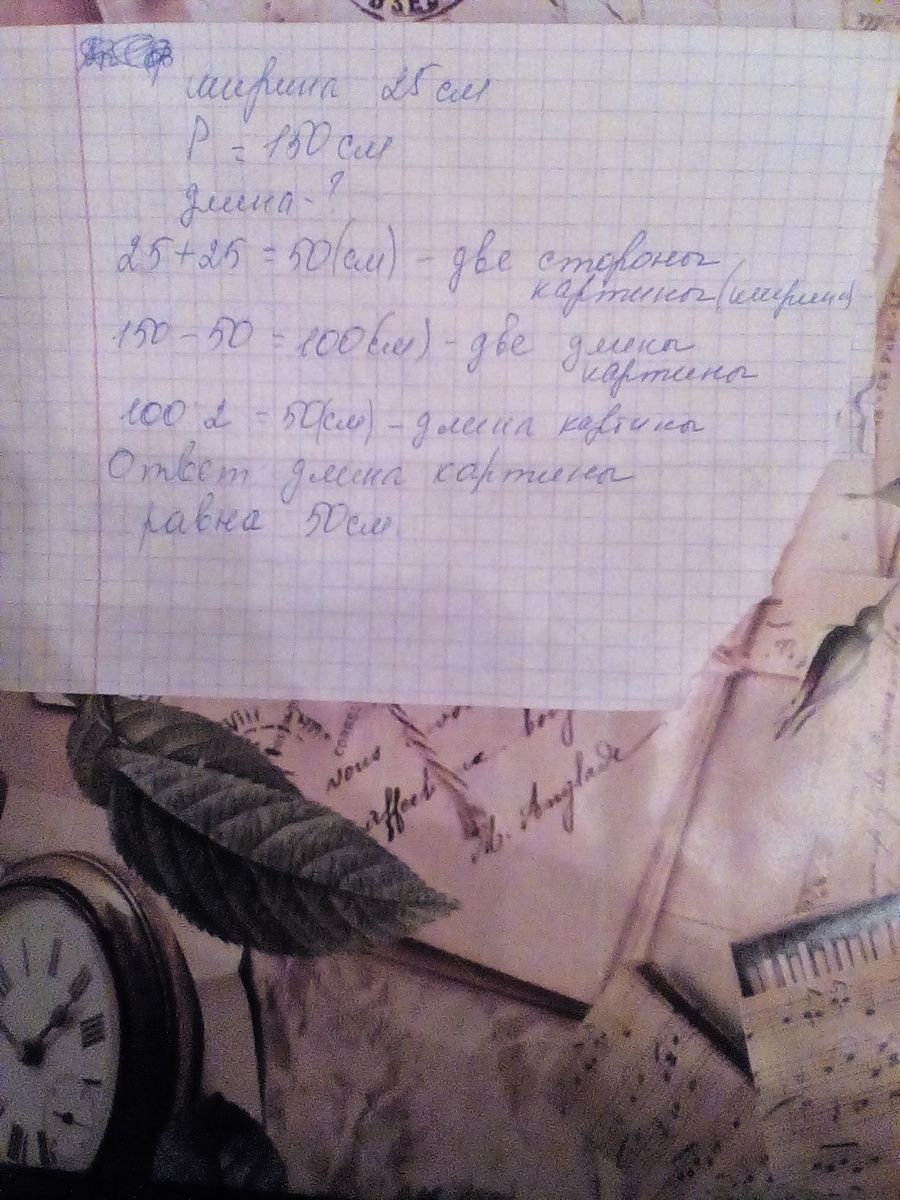 ширина 25 см
P = 150 см
длина - ?
25 + 25 = 50 (см) - две стороны
картины (ширина)
150 - 50 = 100 (см) - две длины
картины
100 : 2 = 50 (см) - длина картины
Ответ длина картины
равна 50 см.
VIII
vous
affect
M. Anglade